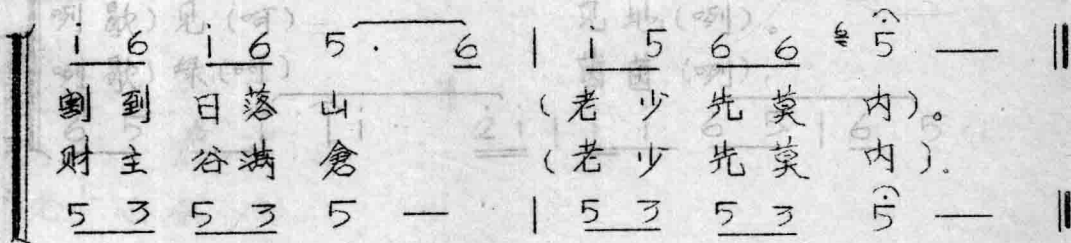 i 6 i 6 5 · 6 | i 5 6 6 5 — ‖
割到 日落 山 (老少 先莫 内)。
财主 谷满 倉 (老少 先莫 内).
5 3 5 3 5 — | 5 3 5 3 5 — ‖